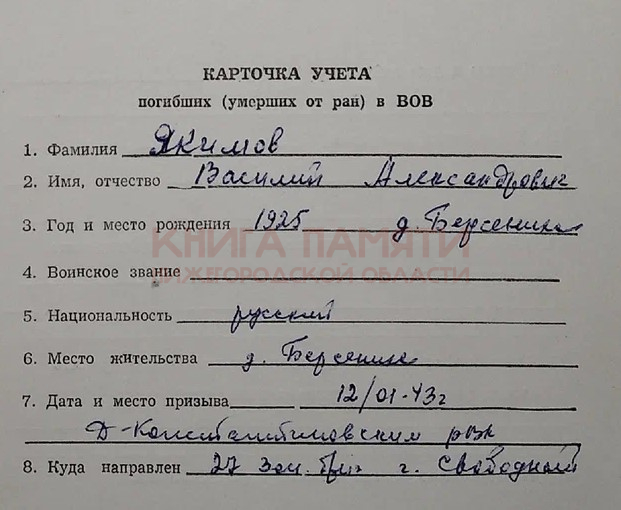 КАРТОЧКА УЧЕТА
погибших (умерших от ран) в ВОВ
1. Фамилия Якимов
2. Имя, отчество Василий Александрович
3. Год и место рождения 1925 д. Берсениха
КНИГА ПАМЯТИ
НИЖЕГОРОДСКОЙ ОБЛАСТИ
4. Воинское звание
5. Национальность русский
6. Место жительства д. Берсениха
7. Дата и место призыва 12/01-43г
Д-Константиновским рвк
8. Куда направлен 27 зап. г. Свободный